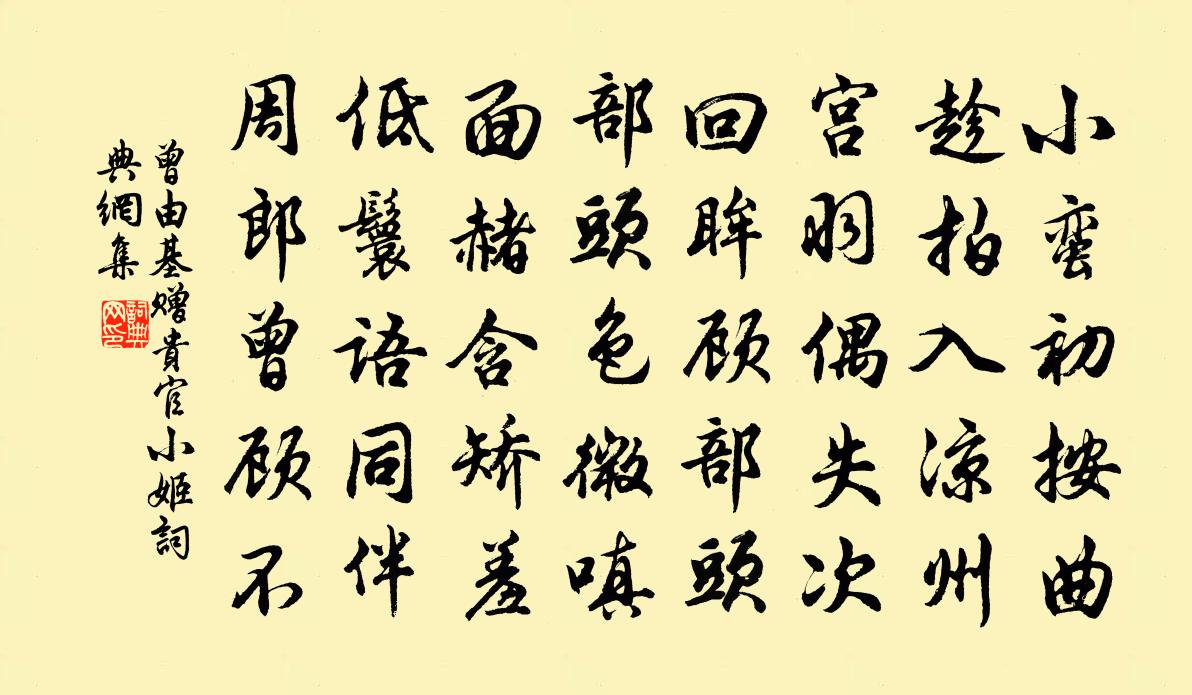 小蛮初按曲
趁拍入凉州
宫羽偶失次
回眸顾部頭
部頭色微嗔
面赭含矫羞
低鬟语同伴
周郎曾顾不
曾由基赠貴官小姬詞
典網集
詞典网印